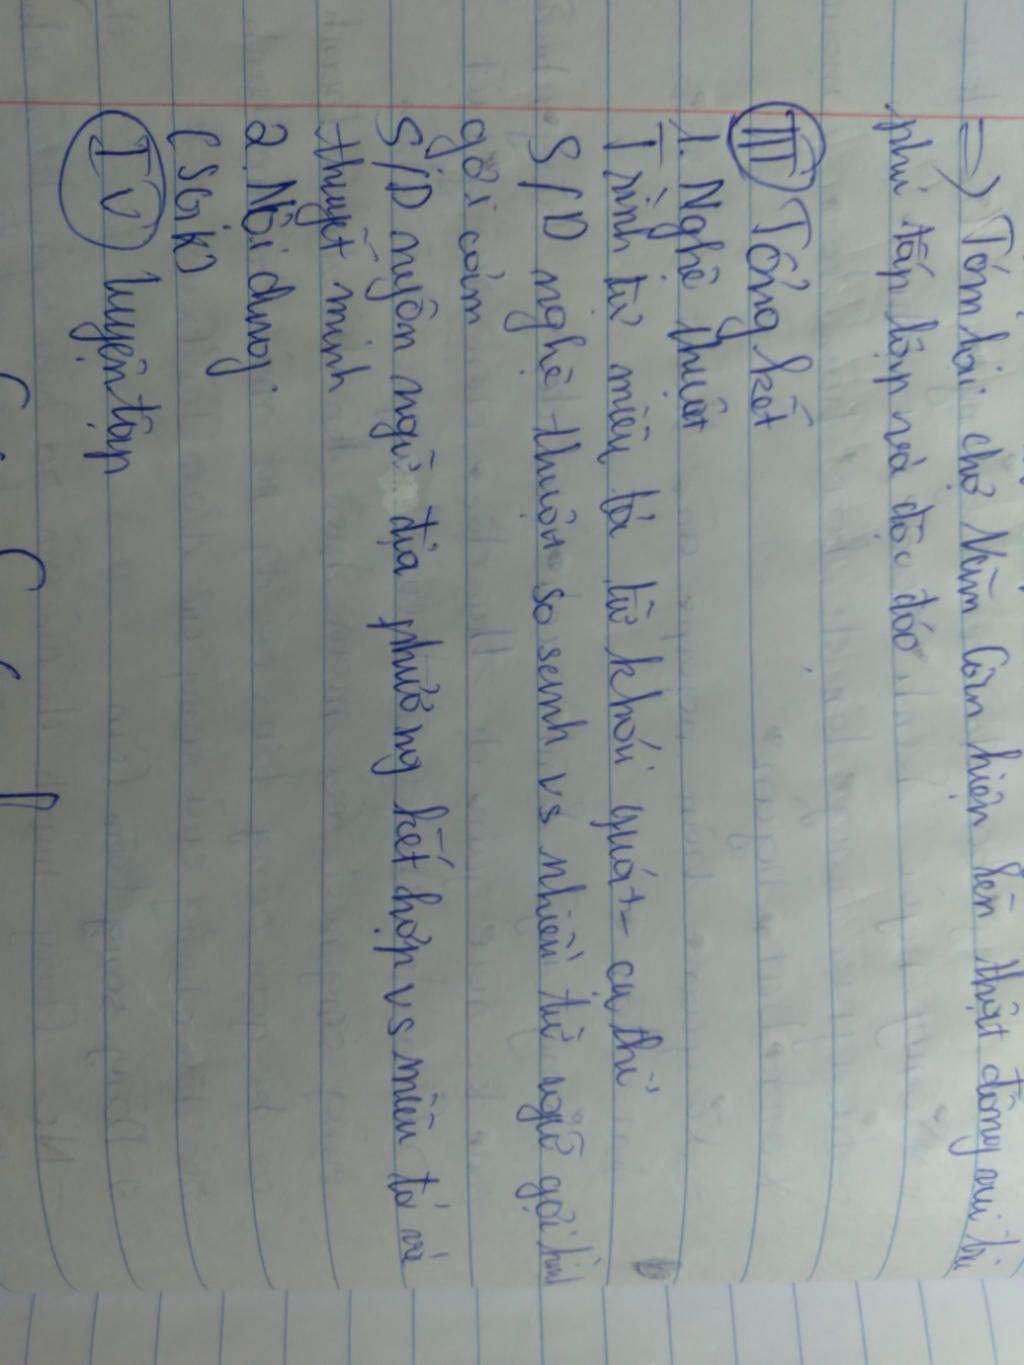 => Tóm lại chợ Năm Căn hiện lên thật đông vui trù
phú tấp lập và độc đáo
III Tổng kết
1. Nghệ thuật
Trình tự miêu tả từ khái quát - cụ thể
S/D nghệ thuật so senh vs nhiều từ ngữ gợi hình
gợi cảm
S/D nuyôn ngữ địa phương kết hợp vs miêu tả và
thuyết minh
2. Nội dung
( SGK)
IV Luyện tập